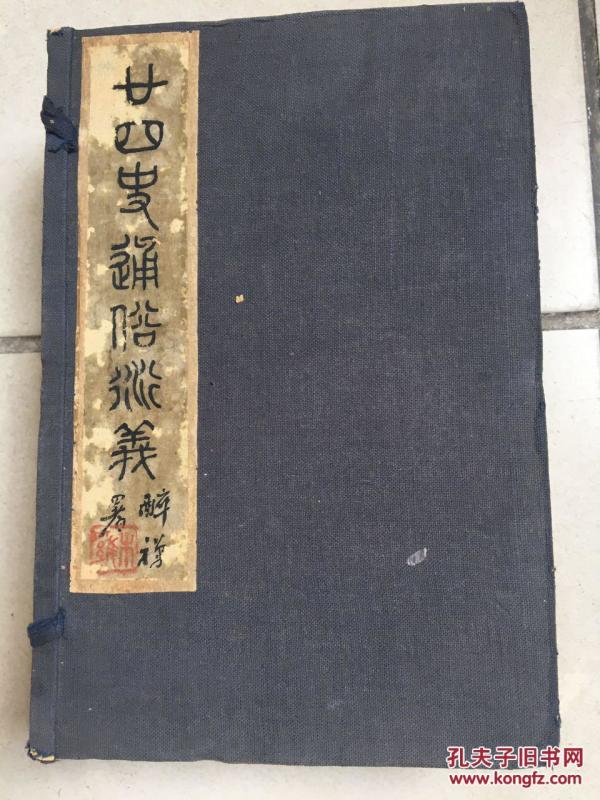 廿四史通俗衍義
醉禪
署
孔夫子旧书网
www.kongfz.com